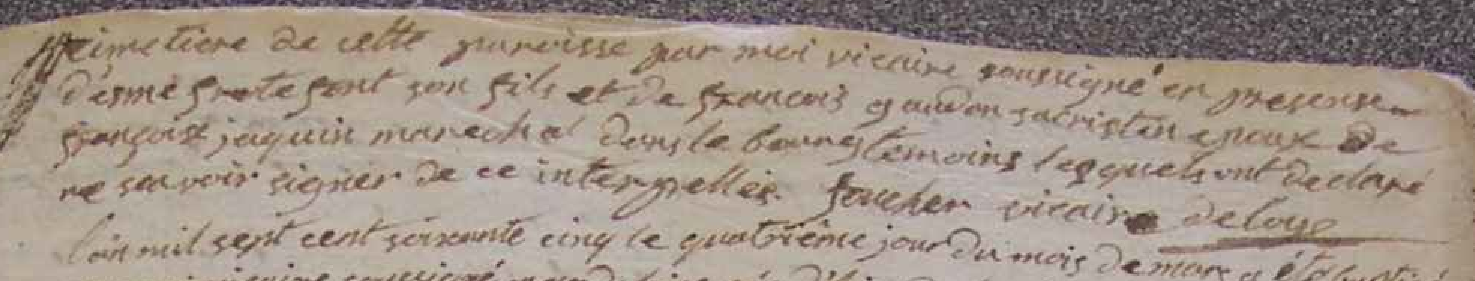 cimetiere de cette paroisse par moi vicaire soussigné en presence
d'esme son fils et de francois gaudon sacristin epoux de
françoise jaquin marechal dans le bourg temoins lesquels ont declaré
ne scavoir signer de ce interpellés. foucher vicaire de loye
l'an mil sept cent soixante cinq le quatrième jour du mois de mars a été
soussigné